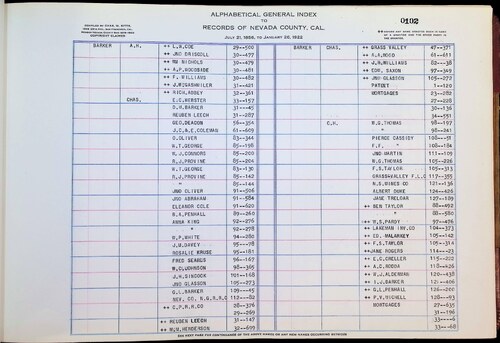 ALPHABETICAL GENERAL INDEX
TO
RECORDS OF NEVADA COUNTY, CAL.
JULY 21, 1856, TO JANUARY 26, 1922
0102
COPYRIGHT CLAIMED
BARKER A.H. ++ L.A.COE 29--500
++ JNO DRISCOLL 30--477
++ WM NICHOLS 30--479
++ A.P.WOODSIDE 30--481
++ F. WILLIAMS 30--482
++ J.MCGASHNILER 31--401
++ RICH.ABBEY 32--361
CHAS. E.C.WEBSTER 33--157
D.H.BARKER 31--45
REUBEN LEECH 31--287
GEO.DEACON 56--354
J.C.& E.COLEMAN 61--609
O.OLIVER 83--344
W.T.GEORGE 85--198
M.J.CONNORS 85--200
R.J.PROVINE 85--204
W.T.GEORGE 83--130
R.J.PROVINE 85--142
" 85--144
JNO OLIVER 91--506
JNO ABRAHAM 91--584
ELEANOR COLE 91--620
B.A.PENHALL 89--260
ANNA KING 92--276
" 92--278
W.P.WHITE 94--280
J.W.DAVEY 95--78
ROSALIE KRUSE 95--181
FRED SEARLS 96--167
W.O.JOHNSON 98--365
J.H.SINCOCK 101--168
JNO GLASSON 105--273
G.L.BARKER 109--45
NEV. CO. N.G.R.R.C 112--82
++ C.P.R.R.CO 28--376
29--269
++ REUBEN LEECH 31--147
++ W.M.HENDERSON 32--609
BARKER CHAS. ++ GRASS VALLEY 47--371
++ H.A.REED 61--611
++ J.R.WILLIAMS 82--38
++ EDW. SAXON 97--349
++ JNO.GLASSON 105--275
PATENT 1--120
MORTGAGES 23--282
27--228
30--136
34--551
C.H. W.G.THOMAS 98--197
" 98--241
PIERCE CASSIDY 108--51
F.F. " 108--184
JNO MARTIN 111--109
W.G.THOMAS 105--226
F.S.TAYLOR 105--313
GRASS VALLEY F.L.C 117--355
N.S.MINES CO 121--136
ALBERT DUKE 124--426
JANE TRELOAR 127--109
++ BEN TAYLOR 88--497
" 88--580
++ W.S.PARDY 97--426
++ LAKEMAN INV.CO 104--373
++ ED. MALARKEY 105--142
++ F.S.TAYLOR 105--314
++ JANE ROGERS 114--23
++ E.C.CRELLER 115--222
++ A.O.RODDA 118--426
++ W.J.ALDERMAN 120--438
++ I.J.BARKER 121--406
++ S.L.PENHALL 121--200
++ P.V.MICHELL 128--93
MORTGAGES 27--635
31--196
33----6
33---68